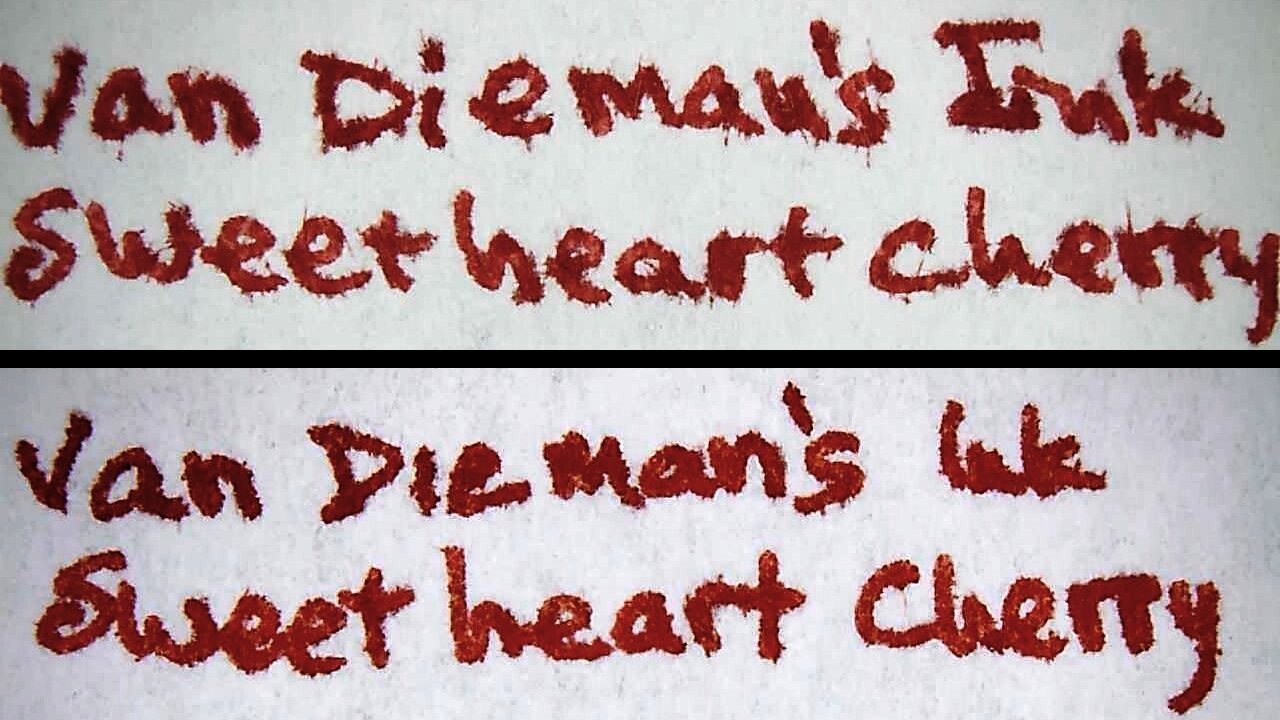 Van Dieman's Ink
Sweet heart Cherry
Van Dieman's Ink
Sweet heart Cherry